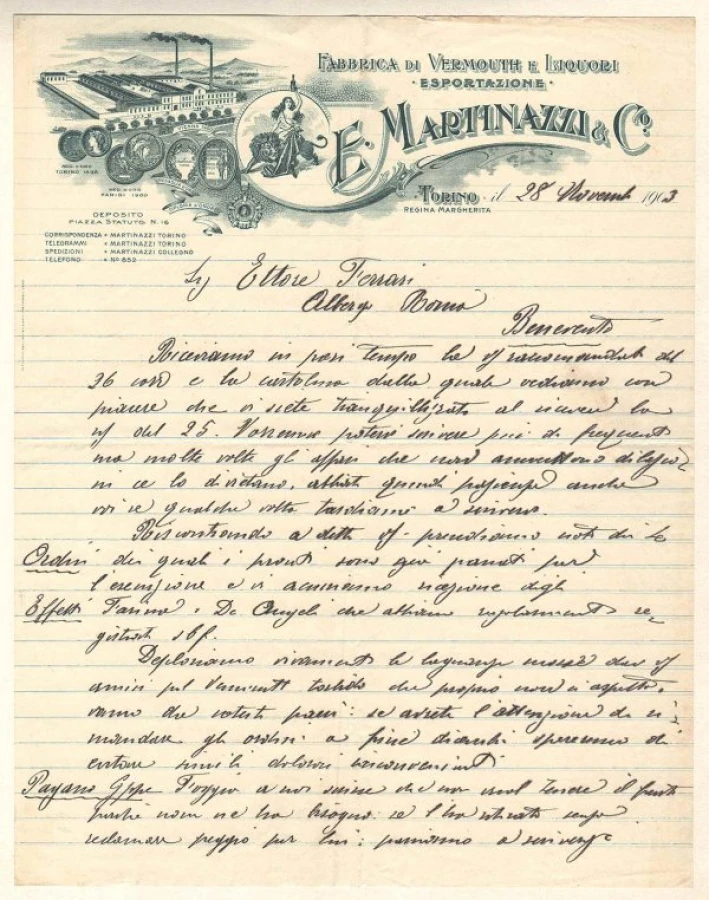 FABBRICA DI VERMOUTH E LIQUORI
· ESPORTAZIONE ·
E. MARTINAZZI & Cº.
MED. D'ORO
TORINO 1898
MED. D'ORO
PARIGI 1900
· TORINO · il 28 Novemb 1903
REGINA MARGHERITA
DEPOSITO
PIAZZA STATUTO N. 16
CORRISPONDENZA • MARTINAZZI TORINO
TELEGRAMMI • MARTINAZZI TORINO
SPEDIZIONI • MARTINAZZI COLLEGNO
TELEFONO • Nº 852
Sig Ettore Ferrari
Albergo Roma
Benevento
Riceviamo in pari tempo la raccomandata del
26 corr e la cartolina dalla quale vediamo con
piacere che vi siete tranquillizzato al ricever la
del 25. Vorremmo potervi scrivere più di frequente
ma molte volte gli affari che non ammettono dilazio
ni ce lo vietano, abbiate quindi pazienza anche
voi se qualche volta tardiamo a scrivervi.
Riscontrando a dette prendiamo nota dei
Ordini dei quali i pronti sono già passati per
l'esecuzione e vi accusiamo ricezione degli
Effetti Farina e De Angeli che abbiamo regolarmente re
gistrati sbf.
Deploriamo vivamente le lagnanze mosse dai
amici pel Vermouth torbido che proprio non ci aspetta
vamo da cotesti paesi: se avrete l'attenzione di ri
mandare gli ordini a fine speriamo di
evitare simili dolorosi inconvenienti
Pagano Gppe Foggia a noi scrisse che non vuol tenere il fusto
perchè non ne ha bisogno: se l'ha ritirato senza
reclamare peggio per lui: passiamo a scrivergli